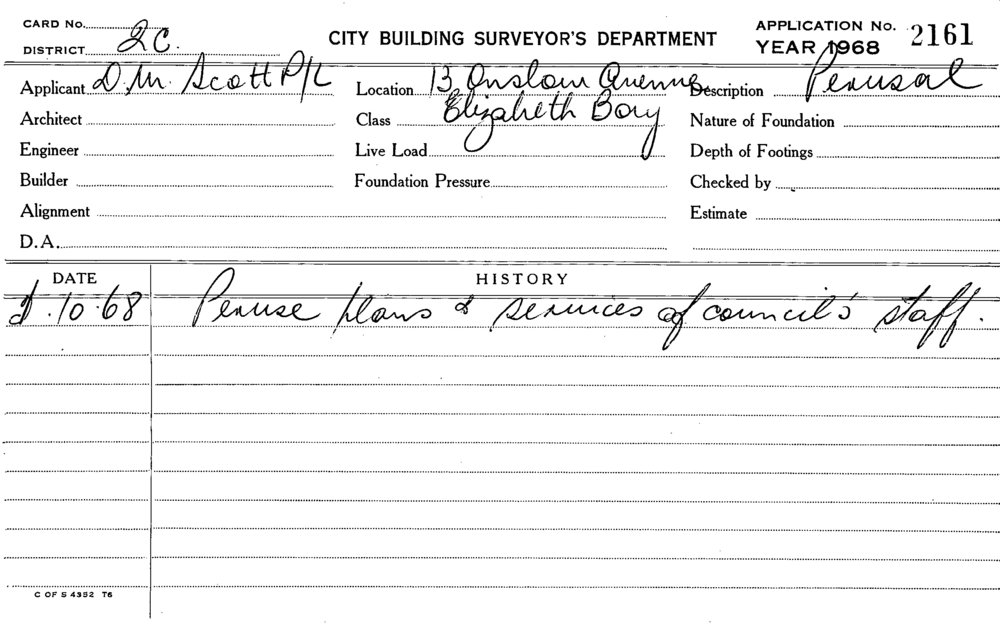 CARD No. APPLICATION No. 2161
DISTRICT 2C. CITY BUILDING SURVEYOR'S DEPARTMENT YEAR 1968
Applicant D.M. Scott P/L Location 13 Onslow Avenue Description Perusal
Architect Class Elizabeth Bay Nature of Foundation
Engineer Live Load Depth of Footings
Builder Foundation Pressure Checked by
Alignment Estimate
D.A.
DATE HISTORY
.10.68 Peruse plans & services of council's staff.
C OF S 4352 T6